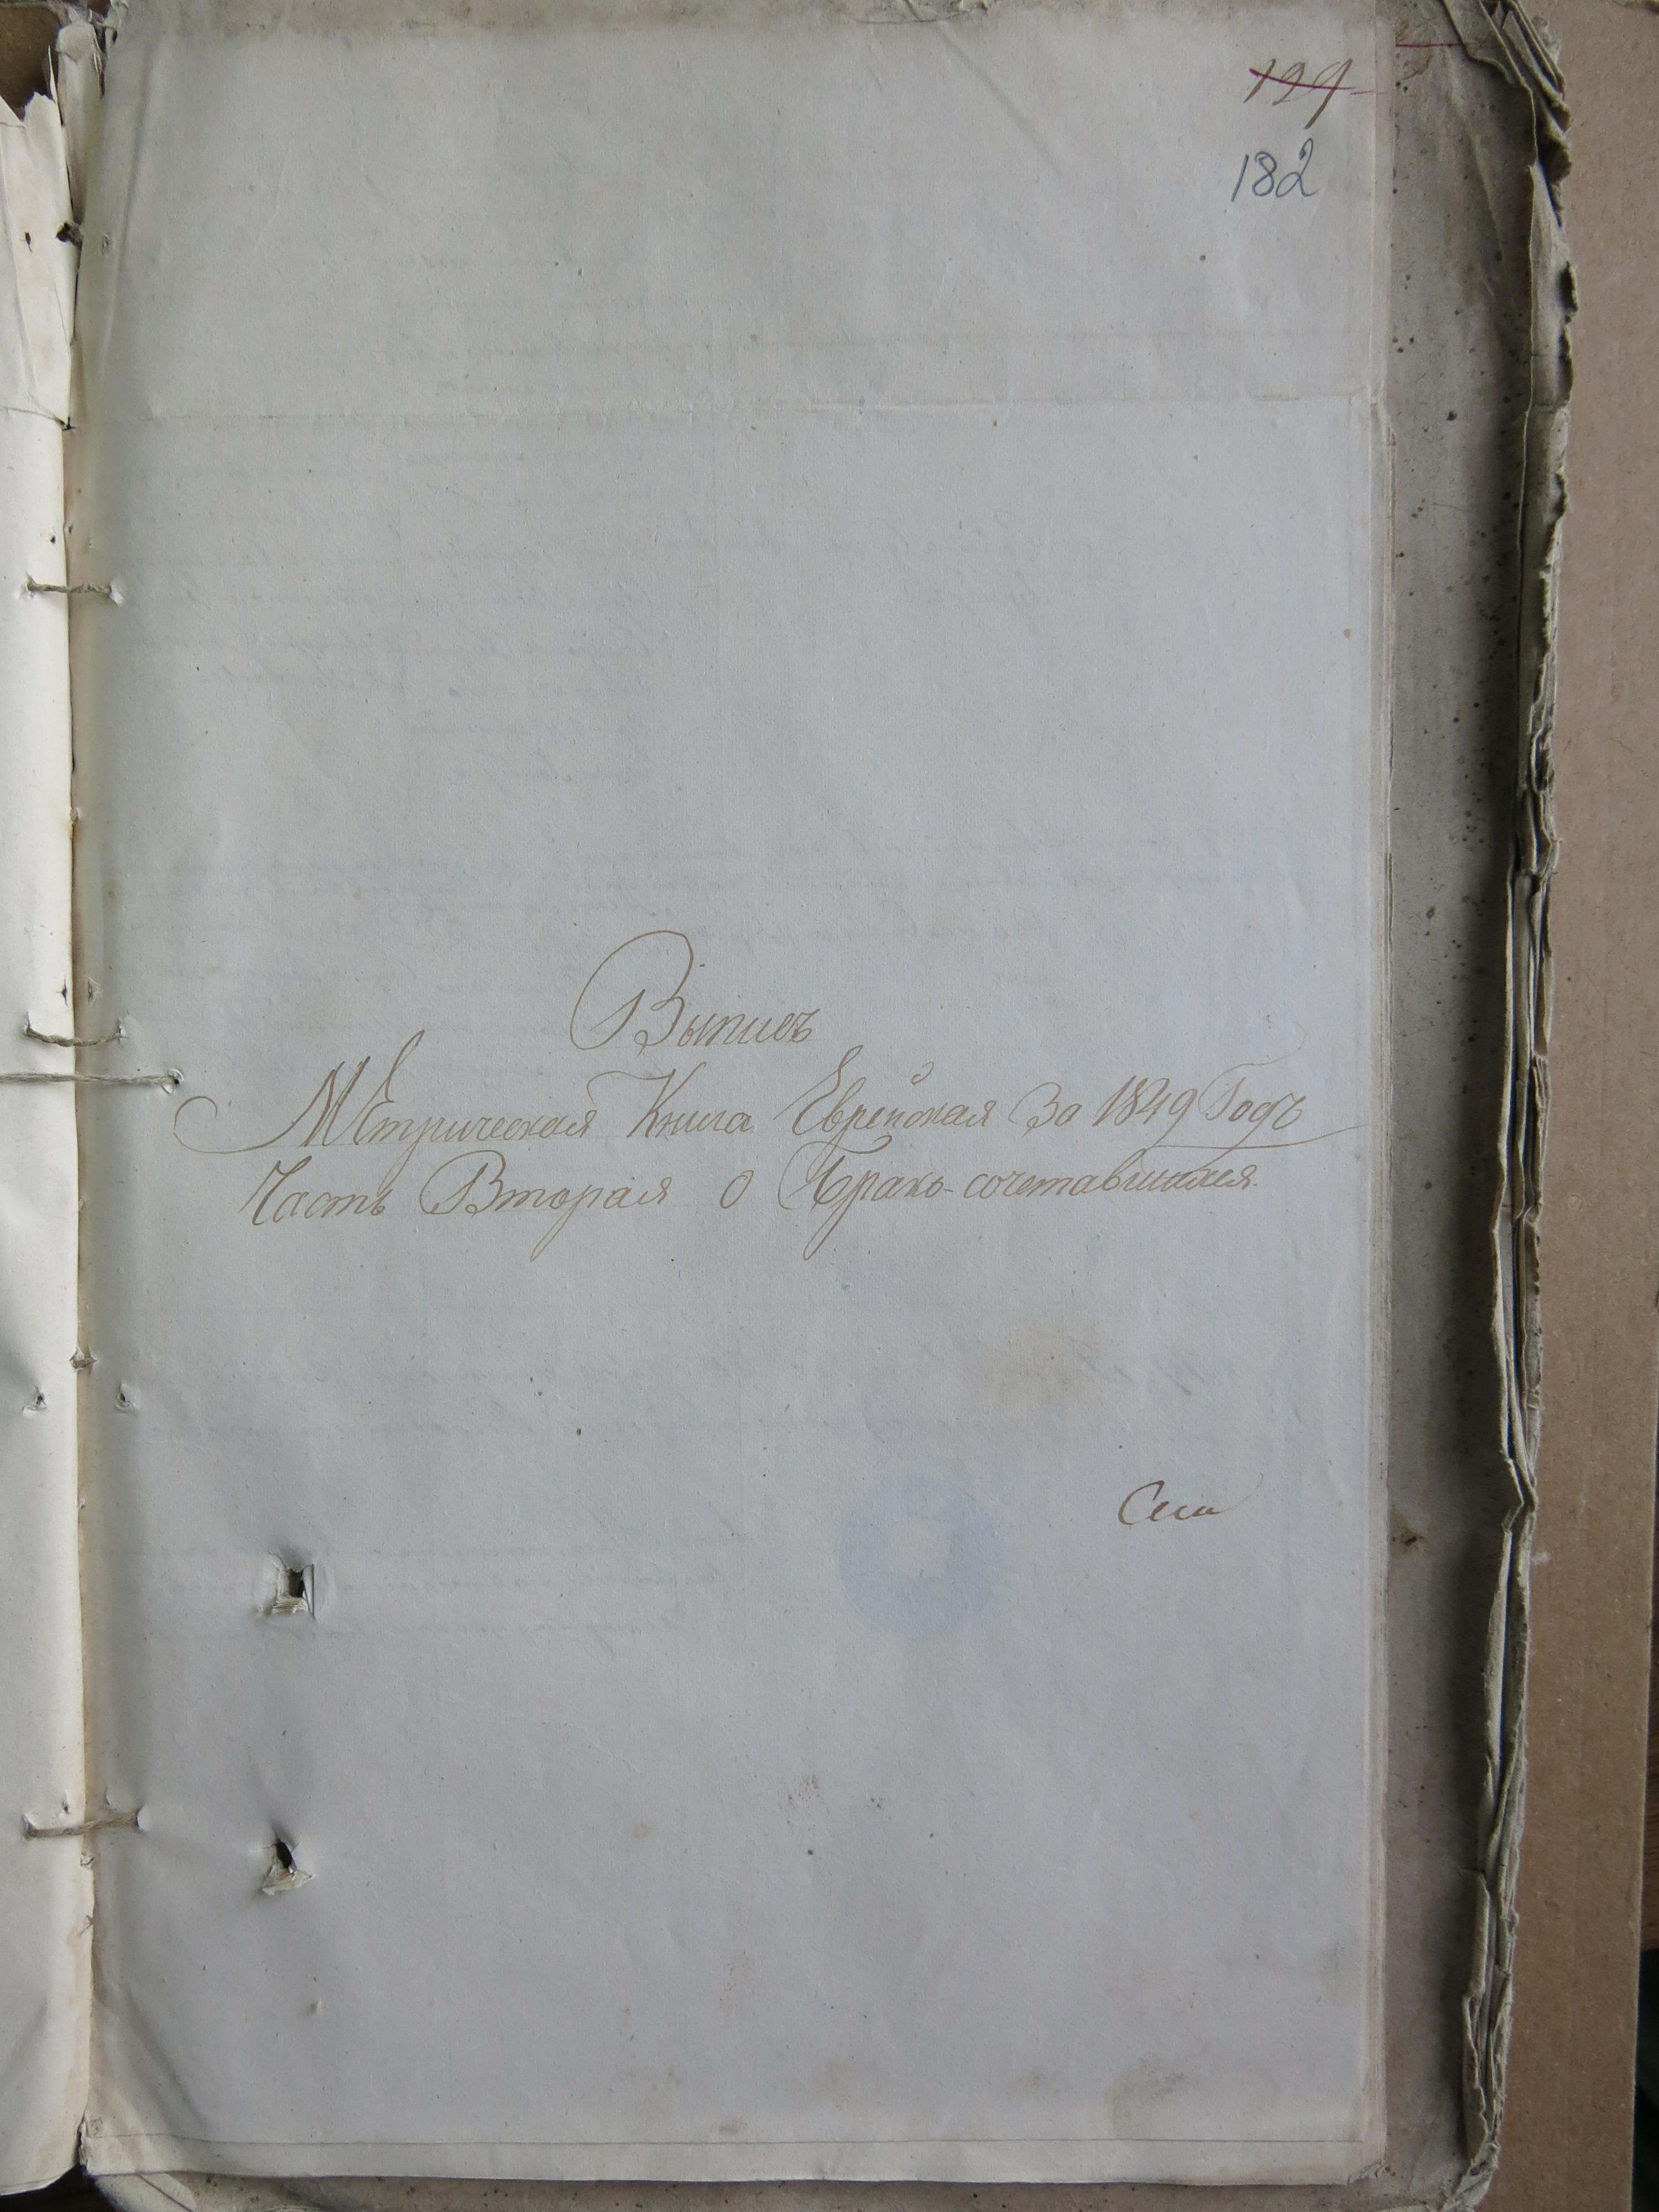 199
182
Выпись
Метрическая Книга Еврейская За 1849 Годъ
Часть Вторая О Брако-сочетавшихся.